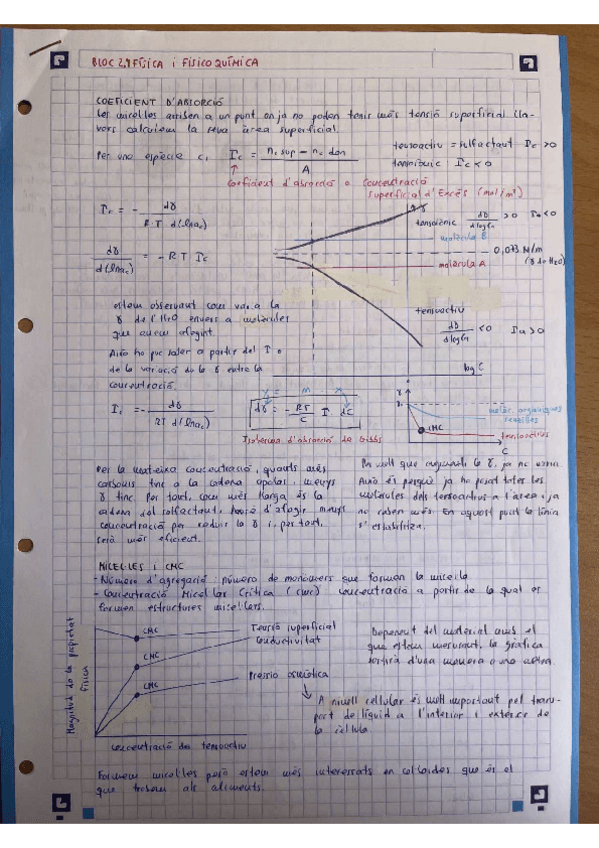 BLOC 2.1 FÍSICA i FISICOQUÍMICA
COEFICIENT D'ABSORCIÓ
Les micel·les arriben a un punt on ja no poden tenir més tensió superficial (lla-
vors calculem la seva àrea superficial.
Per una espècie c, Γc = nc sup - nc dan / A
tensoactiu = sulfactant Γc > 0
tensoiònic Γc < 0
Coeficient d'absorció o Concentració
superficial d'Excés (mol/m²)
Γc = - dγ / R·T d(lnac)
tensoiònic dγ / d log c > 0 Γa < 0
molècula B
dγ / d(lnac) = -RT Γc
0,073 N/m
(γ de H2O)
molècula A
estem observant com varia la
γ de l'H2O envers a molècules
que anem afegint.
tensoactiu dγ / d log c < 0 Γa > 0
Això ho puc saber a partir del Γ o
de la variació de la γ entre la
concentració.
log C
Γc = - dγ / RT d(lnac)
dγ = - RT / C Γ dC
Isoterma d'absorció de Gibbs
molèc. orgàniques
CMC
tensioactius
C
Per la mateixa concentració, quants més
carbonis tinc a la cadena apolar, menys
γ tinc. Per tant, com més llarga és la
cadena del sulfactant, hauré d'afegir menys
concentració per reduir la γ i, per tant,
serà més eficient.
Per molt que augmenti la γ, ja no varia
Això és perquè ja ho posat totes les
molècules dels tensoactius a l'àrea, ja
no caben més. En aquest punt la línia
s'estabilitza.
MICEL·LES I CMC
- Número d'agregació: número de monòmers que formen la micel·la
- Concentració Micel·lar Crítica (cmc) concentració a partir de la qual es
formen estructures micel·lars.
Magnitud de la propietat
física
CMC
Tensió superficial
Conductivitat
CMC
CMC
Pressió osmòtica
Concentració de tensoactiu
Depenent del material amb el
que estem mesurant, la gràfica
sortirà d'una manera o una altra.
A nivell cel·lular és molt important pel trans-
port de líquid a l'interior i exterior de
la cèl·lula
Formem micel·les però estem més interessats en col·loides que és el
que trobem als aliments.